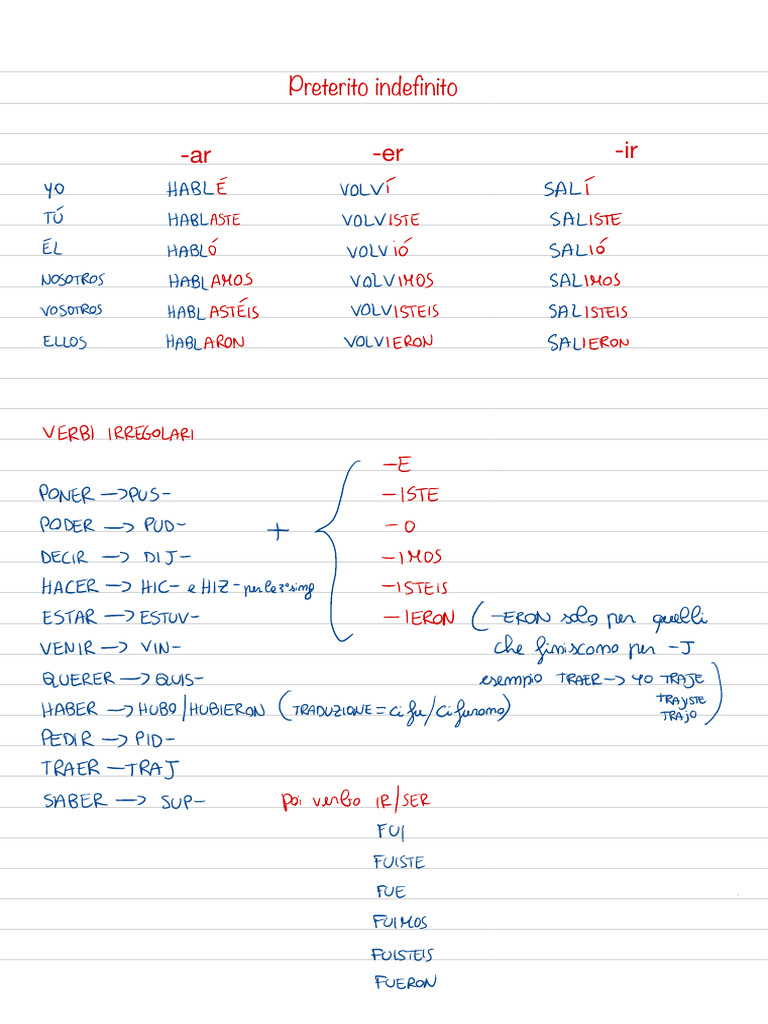 Preterito indefinito
-ar -er -ir
YO HABLÉ VOLVÍ SALÍ
TÚ HABLASTE VOLVISTE SALISTE
ÉL HABLÓ VOLVIÓ SALIÓ
NOSOTROS HABLAMOS VOLVIMOS SALIMOS
VOSOTROS HABLASTÉIS VOLVISTEIS SALISTEIS
ELLOS HABLARON VOLVIERON SALIERON
VERBI IRREGOLARI
-E
PONER —> PUS- -ISTE
PODER —> PUD- + -O
DECIR —> DIJ- -IMOS
HACER —> HIC- e HIZ- per la 3ª sing -ISTEIS
ESTAR —> ESTUV- -IERON (-ERON solo per quelli
VENIR —> VIN- che finiscono per -J
QUERER —> QUIS- esempio TRAER —> YO TRAJE
TRAJSTE
HABER —> HUBO/HUBIERON (TRADUZIONE = ci fu/ci furono) TRAJO)
PEDIR —> PID-
TRAER — TRAJ
SABER —> SUP- poi verbo IR/SER
FUI
FUISTE
FUE
FUIMOS
FUISTEIS
FUERON